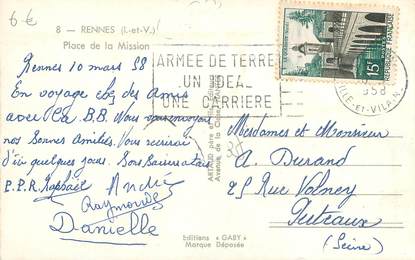 6 €
8 - RENNES (I.-et-V.)
Place de la Mission
ARMEE DE TERRE
UN IDEAL
UNE CARRIERE
15F
958
ILLE-et-VILAINE
Rennes 10 mars 58
En voyage chez des Amis
avec la B.B. Nous vous envoyons
nos Bonnes Amitiés. Vous écrirai
d'ici quelques jours. Bons Baisers a tous
P.P.R. Raphaël André
Raymonde
Danielle
38
Mesdames et Monsieur
A. Durand
25 Rue Volney
Puteaux
(Seine)
Editions « GABY »
Marque Déposée